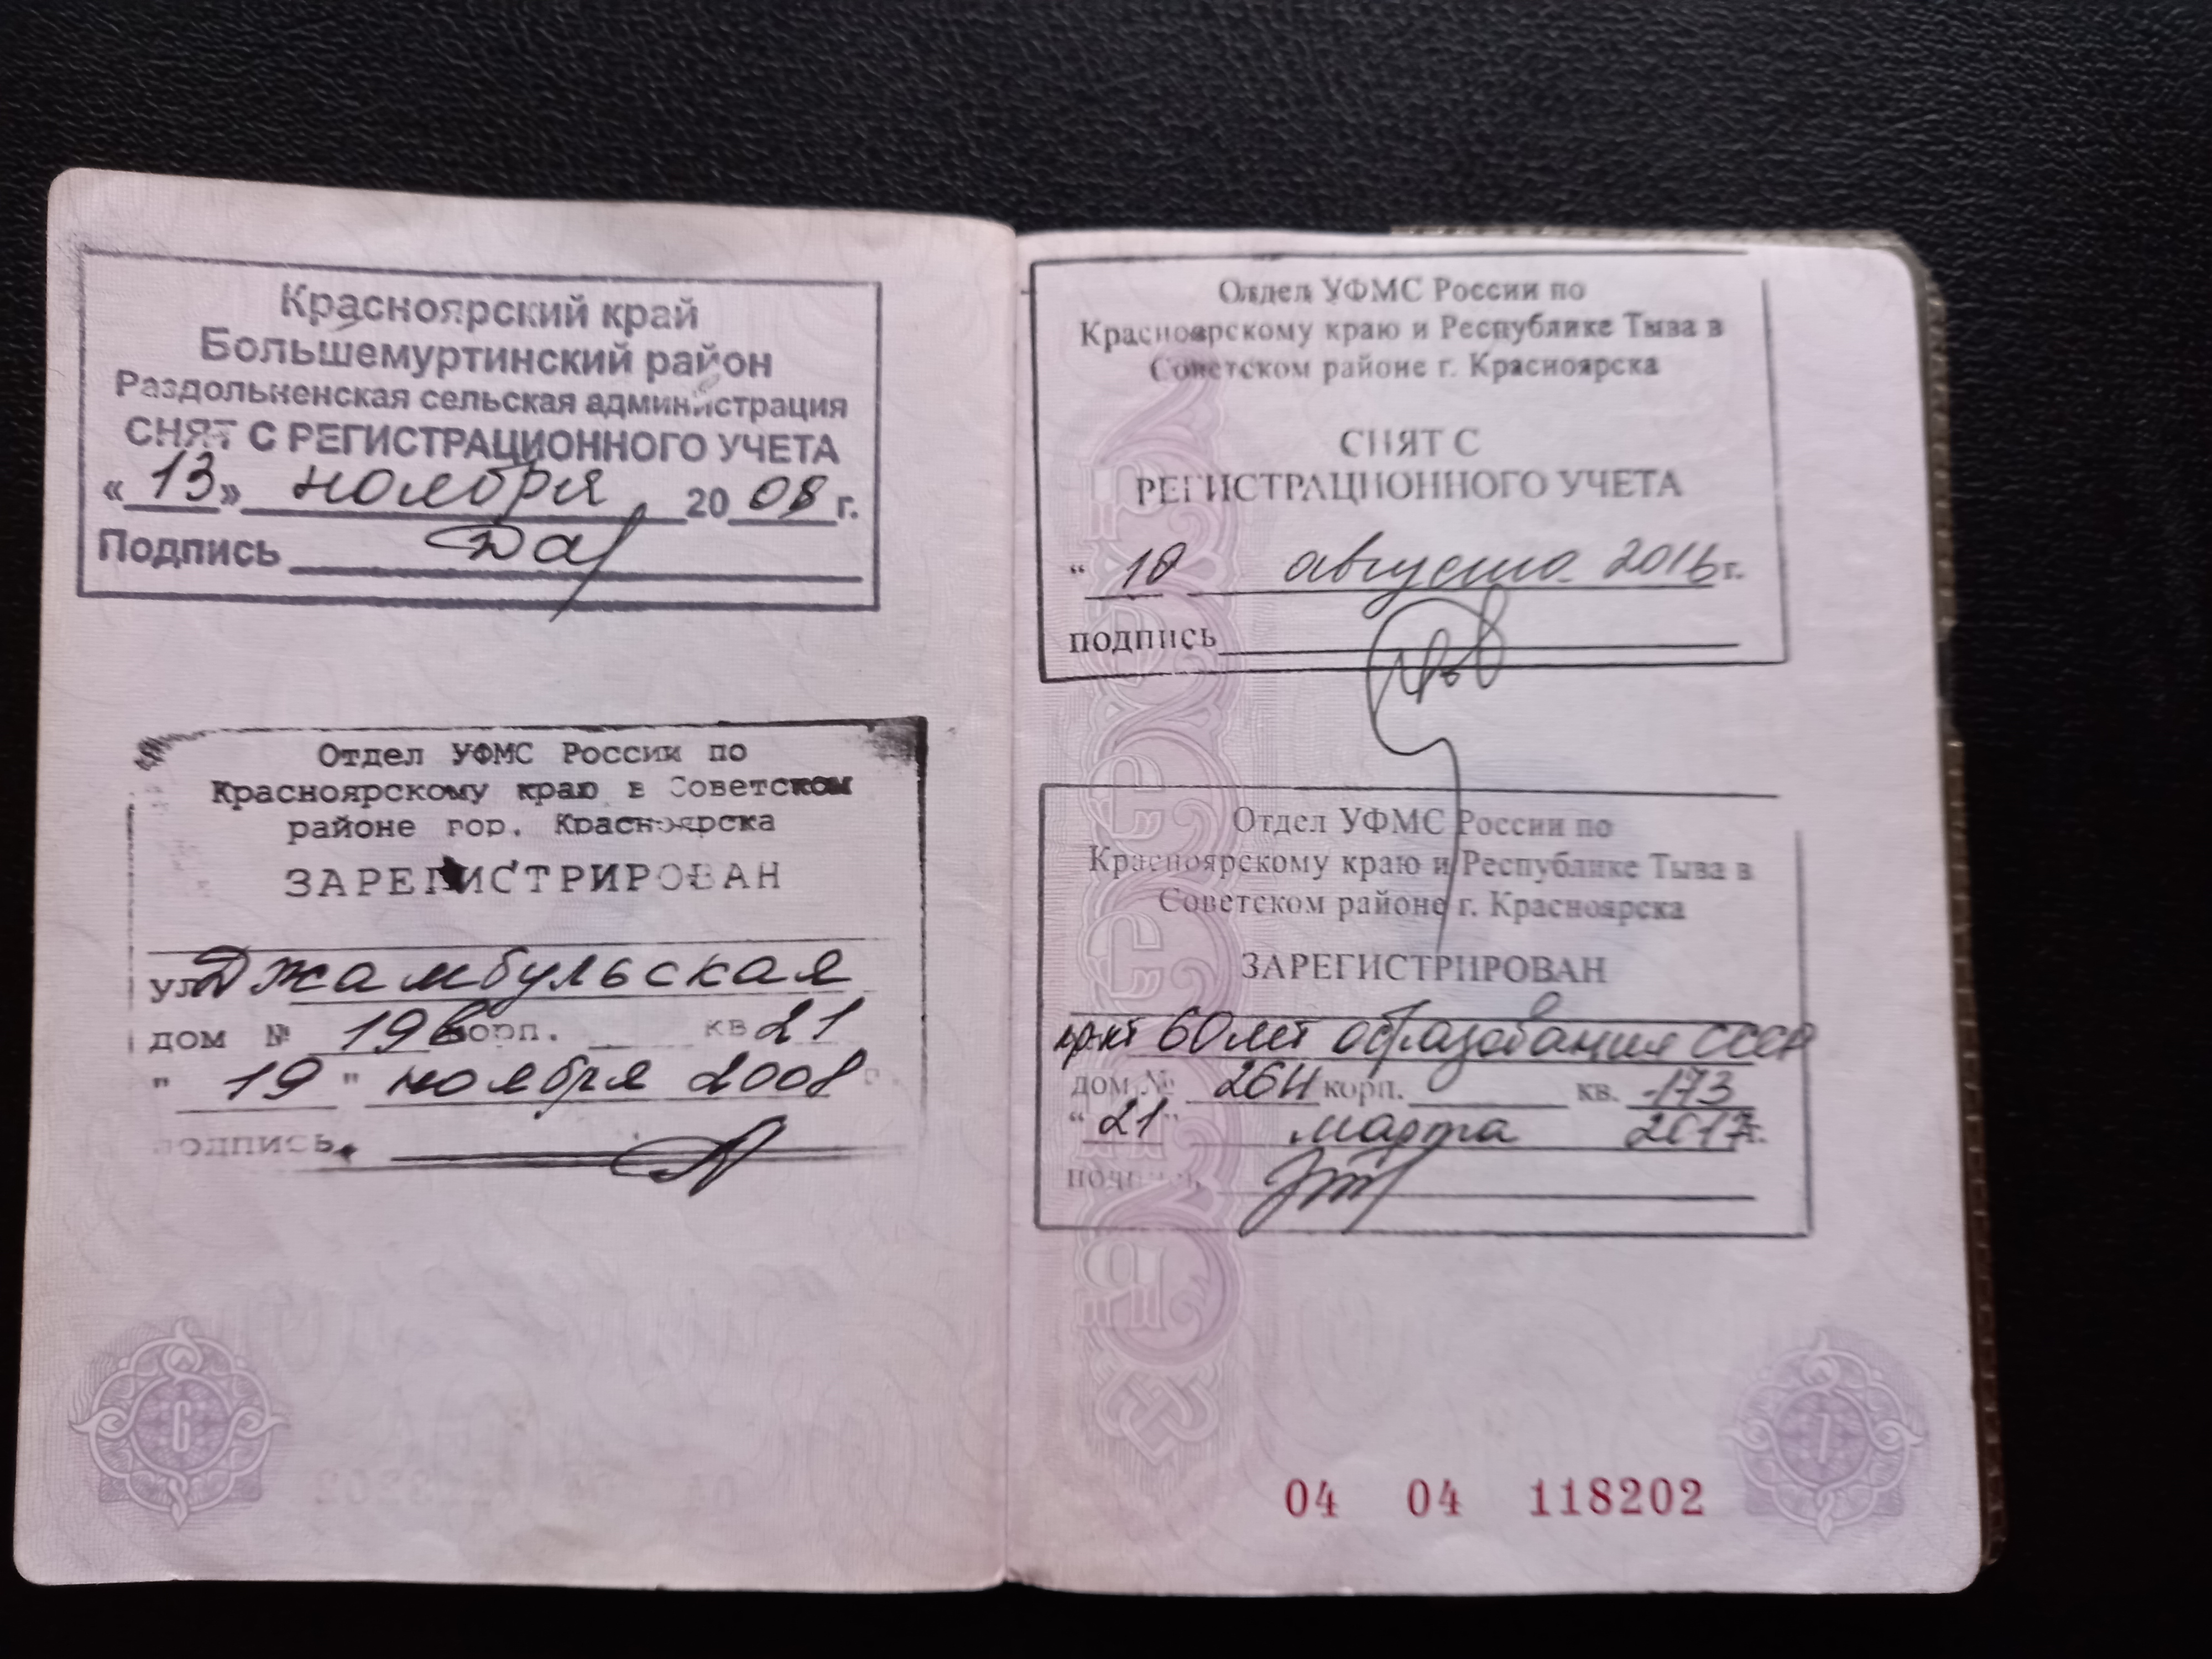 Красноярский край
Большемуртинский район
Раздольненская сельская администрация
СНЯТ С РЕГИСТРАЦИОННОГО УЧЕТА
«13» ноября 2008 г.
Подпись
Отдел УФМС России по
Красноярскому краю в Советском
районе гор. Красноярска
ЗАРЕГИСТРИРОВАН
ул. Джамбульская
дом № 19б корп. кв 21
"19" ноября 2008 г.
подпись
6
Отдел УФМС России по
Красноярскому краю и Республике Тыва в
Советском районе г. Красноярска
СНЯТ С
РЕГИСТРАЦИОННОГО УЧЕТА
"18 августа 2016 г.
подпись
Отдел УФМС России по
Красноярскому краю и Республике Тыва в
Советском районе г. Красноярска
ЗАРЕГИСТРИРОВАН
60 лет образования СССР
дом № корп. кв. 173
"21" марта 2017 г.
04 04 118202
7